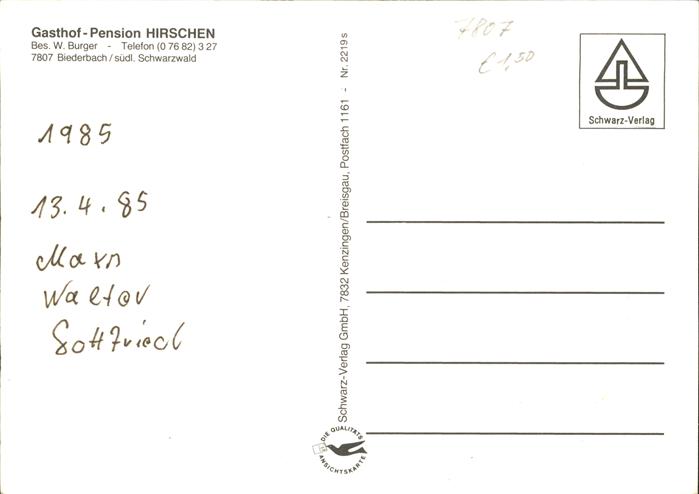 Gasthof-Pension HIRSCHEN
Bes. W. Burger - Telefon (0 76 82) 3 27
7807 Biederbach/südl. Schwarzwald
1985
13.4.85
Walter
Gottfried
Schwarz-Verlag GmbH, 7832 Kenzingen/Breisgau, Postfach 1161 - Nr. 2219s
DIE QUALITÄTS
ANSICHTSKARTE
7807
€ 1,50
Schwarz-Verlag